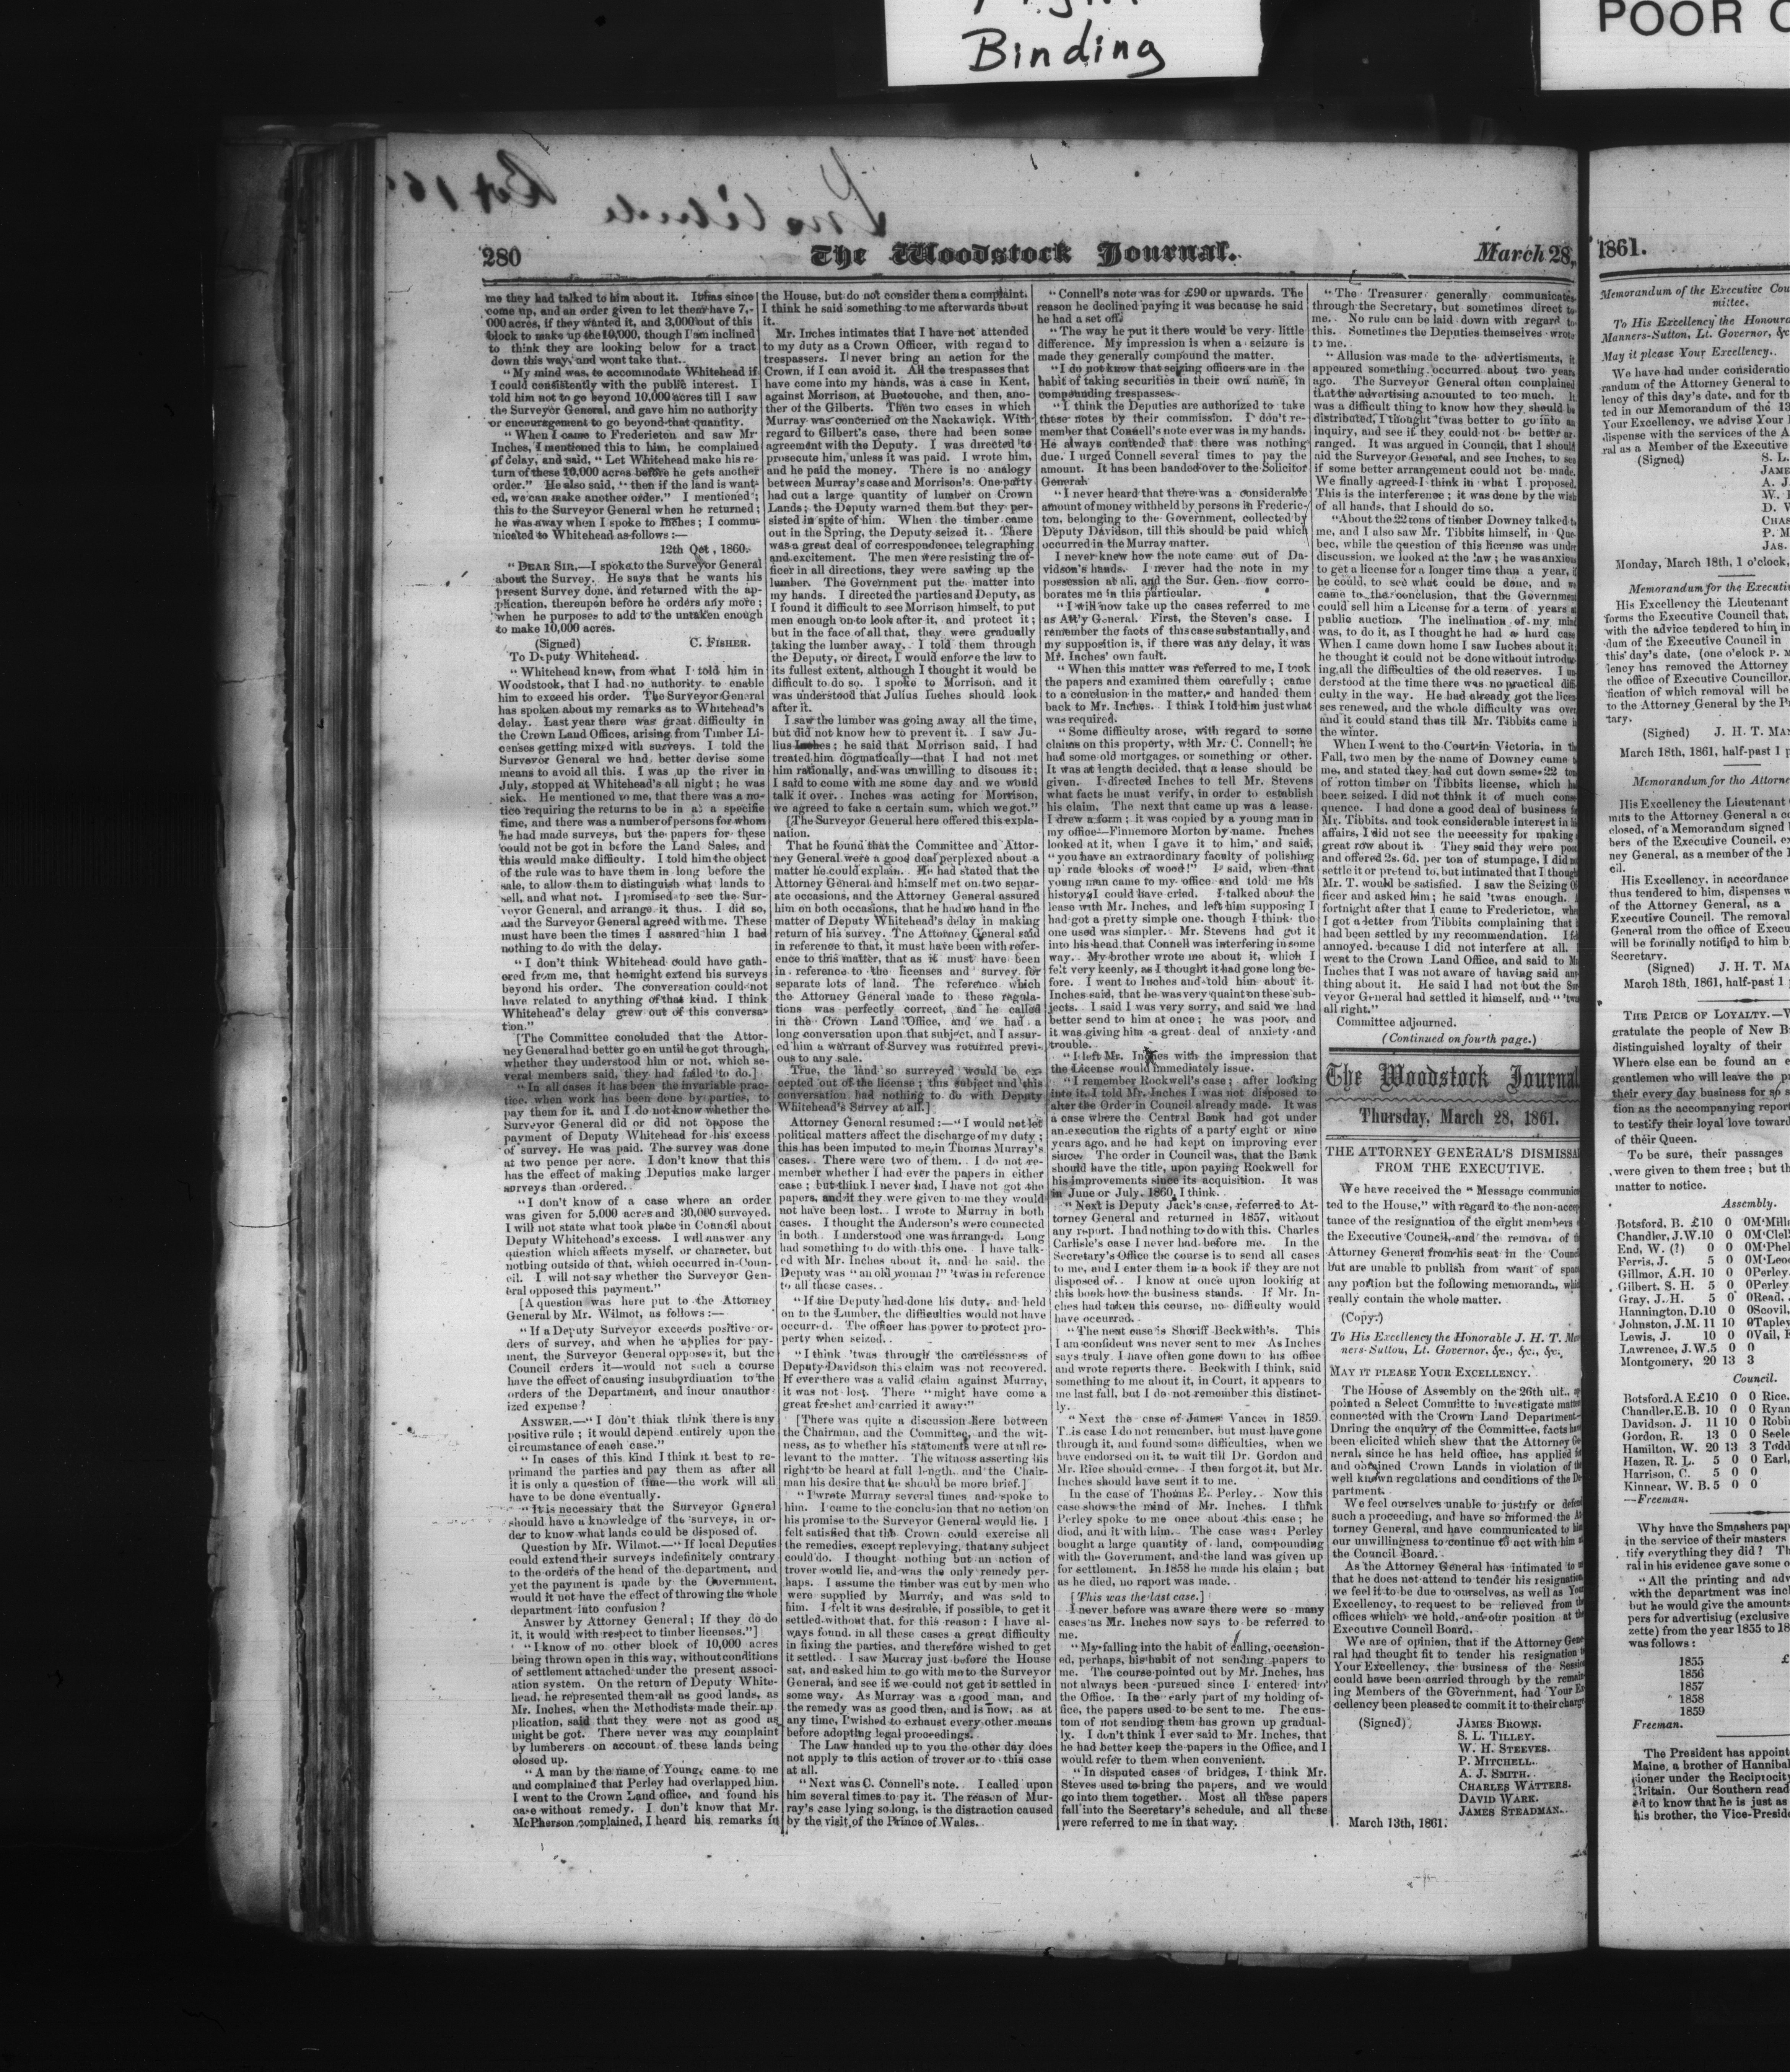 Binding
POOR
280
The Woodstock Journal.
March 28,
me they had talked to him about it. It has since
come up, and an order given to let them have 7,-
000 acres, if they wanted it, and 3,000 out of this
block to make up the 10,000, though I am inclined
to think they are looking below for a tract
down this way, and wont take that.
"My mind was, to accommodate Whitehead if
I could consistently with the public interest. I
told him not to go beyond 10,000 acres till I saw
the Surveyor General, and gave him no authority
or encouragement to go beyond that quantity.
"When I came to Fredericton and saw Mr
Inches, I mentioned this to him, he complained
of delay, and said, "Let Whitehead make his re-
turn of these 10,000 acres before he gets another
order." He also said, "then if the land is want-
ed, we can make another order." I mentioned
this to the Surveyor General when he returned;
he was away when I spoke to Inches; I commu-
nicated to Whitehead as follows:—
12th Oct, 1860.
"DEAR SIR,—I spoke to the Surveyor General
about the Survey. He says that he wants his
present Survey done, and returned with the ap-
plication, thereupon before he orders any more;
when he purposes to add to the untaken enough
to make 10,000 acres.
(Signed) C. FISHER.
To Deputy Whitehead.
"Whitehead knew, from what I told him in
Woodstock, that I had no authority to enable
him to exceed his order. The Surveyor General
has spoken about my remarks as to Whitehead's
delay. Last year there was great difficulty in
the Crown Land Offices, arising from Timber Li-
censes getting mixed with surveys. I told the
Surveyor General we had better devise some
means to avoid all this. I was up the river in
July, stopped at Whitehead's all night; he was
sick. He mentioned to me, that there was a no-
tice requiring the returns to be in at a specific
time, and there was a number of persons for whom
he had made surveys, but the papers for these
could not be got in before the Land Sales, and
this would make difficulty. I told him the object
of the rule was to have them in long before the
sale, to allow them to distinguish what lands to
sell, and what not. I promised to see the Sur-
veyor General, and arrange it thus. I did so,
and the Surveyor General agreed with me. These
must have been the times I assured him I had
nothing to do with the delay.
"I don't think Whitehead could have gath-
ered from me, that he might extend his surveys
beyond his order. The conversation could not
have related to anything of that kind. I think
Whitehead's delay grew out of this conversa-
tion."
[The Committee concluded that the Attor-
ney General had better go on until he got through,
whether they understood him or not, which se-
veral members said, they had failed to do.]
"In all cases it has been the invariable prac-
tice, when work has been done by parties, to
pay them for it, and I do not know whether the
Surveyor General did or did not oppose the
payment of Deputy Whitehead for his excess
of survey. He was paid. The survey was done
at two pence per acre. I don't know that this
has the effect of making Deputies make larger
surveys than ordered.
"I don't know of a case where an order
was given for 5,000 acres and 30,000 surveyed.
I will not state what took place in Council about
Deputy Whitehead's excess. I will answer any
question which affects myself, or character, but
nothing outside of that, which occurred in Coun-
cil. I will not say whether the Surveyor Gen-
eral opposed this payment."
[A question was here put to the Attorney
General by Mr. Wilmot, as follows:—
"If a Deputy Surveyor exceeds positive or-
ders of survey, and when he applies for pay-
ment, the Surveyor General opposes it, but the
Council orders it—would not such a course
have the effect of causing insubordination to the
orders of the Department, and incur unauthor-
ized expense?
ANSWER.—"I don't think think there is any
positive rule; it would depend entirely upon the
circumstance of each case."
"In cases of this kind I think it best to re-
primand the parties and pay them as after all
it is only a question of time—the work will all
have to be done eventually.
"It is necessary that the Surveyor General
should have a knowledge of the surveys, in or-
der to know what lands could be disposed of.
Question by Mr. Wilmot.—"If local Deputies
could extend their surveys indefinitely contrary
to the orders of the head of the department, and
yet the payment is made by the Government,
would it not have the effect of throwing the whole
department into confusion?
Answer by Attorney General; If they do do
it, it would with respect to timber licenses."]
"I know of no other block of 10,000 acres
being thrown open in this way, without conditions
of settlement attached under the present associ-
ation system. On the return of Deputy White-
head, he represented them all as good lands, as
Mr. Inches, when the Methodists made their ap-
plication, said that they were not as good as
might be got. There never was any complaint
by lumberers on account of these lands being
closed up.
"A man by the name of Young, came to me
and complained that Perley had overlapped him.
I went to the Crown Land office, and found his
case without remedy. I don't know that Mr.
McPherson complained, I heard his remarks in
the House, but do not consider them a complaint.
I think he said something to me afterwards about
it.
Mr. Inches intimates that I have not attended
to my duty as a Crown Officer, with regard to
trespassers. I never bring an action for the
Crown, if I can avoid it. All the trespasses that
have come into my hands, was a case in Kent,
against Morrison, at Buctouche, and then, ano-
ther of the Gilberts. Then two cases in which
Murray was concerned on the Nackawick. With
regard to Gilbert's case, there had been some
agreement with the Deputy. I was directed to
prosecute him, unless it was paid. I wrote him,
and he paid the money. There is no analogy
between Murray's case and Morrison's. One party
had cut a large quantity of lumber on Crown
Lands; the Deputy warned them but they per-
sisted in spite of him. When the timber came
out in the Spring, the Deputy seized it. There
was a great deal of correspondence, telegraphing
and excitement. The men were resisting the of-
ficer in all directions, they were sawing up the
lumber. The Government put the matter into
my hands. I directed the parties and Deputy, as
I found it difficult to see Morrison himself, to put
men enough on to look after it, and protect it;
but in the face of all that, they were gradually
taking the lumber away. I told them through
the Deputy, or direct, I would enforce the law to
its fullest extent, although I thought it would be
difficult to do so. I spoke to Morrison, and it
was understood that Julius Inches should look
after it.
I saw the lumber was going away all the time,
but did not know how to prevent it. I saw Ju-
lius Inches; he said that Morrison said, I had
treated him dogmatically—that I had not met
him rationally, and was unwilling to discuss it;
I said to come with me some day and we would
talk it over. Inches was acting for Morrison,
we agreed to take a certain sum, which we got."
[The Surveyor General here offered this expla-
nation.
That he found that the Committee and Attor-
ney General were a good deal perplexed about a
matter he could explain. He had stated that the
Attorney General and himself met on two separ-
ate occasions, and the Attorney General assured
him on both occasions, that he had no hand in the
matter of Deputy Whitehead's delay in making
return of his survey. The Attorney General said
in reference to that, it must have been with refer-
ence to this matter, that as it must have been
in reference to the licenses and survey for
separate lots of land. The reference which
the Attorney General made to these regula-
tions was perfectly correct, and he called
in the Crown Land Office, and we had a
long conversation upon that subject, and I assur-
ed him a warrant of Survey was returned previ-
ous to any sale.
True, the land so surveyed would be ex-
cepted out of the license; this subject and this
conversation had nothing to do with Deputy
Whitehead's Survey at all.]
Attorney General resumed:—"I would not let
political matters affect the discharge of my duty;
this has been imputed to me, in Thomas Murray's
cases. There were two of them. I do not re-
member whether I had ever the papers in either
case; but think I never had, I have not got the
papers, and if they were given to me they would
not have been lost. I wrote to Murray in both
cases. I thought the Anderson's were connected
in both. I understood one was arranged. Long
had something to do with this one. I have talk-
ed with Mr. Inches about it, and he said, the
Deputy was "an old woman?" 'twas in reference
to all these cases.
"If the Deputy had done his duty, and held
on to the Lumber, the difficulties would not have
occurred. The officer has power to protect pro-
perty when seized.
"I think 'twas through the carelessness of
Deputy Davidson this claim was not recovered.
If ever there was a valid claim against Murray,
it was not lost. There "might have come a
great freshet and carried it away."
[There was quite a discussion here between
the Chairman, and the Committee, and the wit-
ness, as to whether his statements were at all re-
levant to the matter. The witness asserting his
right to be heard at full length, and the Chair-
man his desire that he should be more brief.]
"I wrote Murray several times and spoke to
him. I came to the conclusion that no action on
his promise to the Surveyor General would lie. I
felt satisfied that the Crown could exercise all
the remedies, except replevying, that any subject
could do. I thought nothing but an action of
trover would lie, and was the only remedy per-
haps. I assume the timber was cut by men who
were supplied by Murray, and was sold to
him. I felt it was desirable, if possible, to get it
settled without that, for this reason; I have al-
ways found, in all these cases a great difficulty
in fixing the parties, and therefore wished to get
it settled. I saw Murray just before the House
sat, and asked him to go with me to the Surveyor
General, and see if we could not get it settled in
some way. As Murray was a good man, and
the remedy was as good then, and is now, as at
any time, I wished to exhaust every other means
before adopting legal proceedings.
The Law handed up to you the other day does
not apply to this action of trover or to this case
at all.
"Next was C. Connell's note. I called upon
him several times to pay it. The reason of Mur-
ray's case lying so long, is the distraction caused
by the visit of the Prince of Wales.
"Connell's note was for £90 or upwards. The
reason he declined paying it was because he said
he had a set off.
"The way he put it there would be very little
difference. My impression is when a seizure is
made they generally compound the matter.
"I do not know that seizing officers are in the
habit of taking securities in their own name, in
compounding trespasses.
"I think the Deputies are authorized to take
these notes by their commission. I don't re-
member that Connell's note ever was in my hands.
He always contended that there was nothing
due. I urged Connell several times to pay the
amount. It has been handed over to the Solicitor
General.
"I never heard that there was a considerable
amount of money withheld by persons in Frederic-
ton, belonging to the Government, collected by
Deputy Davidson, till this should be paid which
occurred in the Murray matter.
I never knew how the note came out of Da-
vidson's hands. I never had the note in my
possession at all, and the Sur. Gen. now corro-
borates me in this particular.
"I will now take up the cases referred to me
as Att'y General. First, the Steven's case. I
remember the facts of this case substantially, and
my supposition is, if there was any delay, it was
Mr. Inches' own fault.
"When this matter was referred to me, I took
the papers and examined them carefully; came
to a conclusion in the matter, and handed them
back to Mr. Inches. I think I told him just what
was required.
"Some difficulty arose, with regard to some
claims on this property, with Mr. C. Connell; he
had some old mortgages, or something or other.
It was at length decided, that a lease should be
given. I directed Inches to tell Mr. Stevens
what facts he must verify, in order to establish
his claim. The next that came up was a lease.
I drew a form; it was copied by a young man in
my office—Finnemore Morton by name. Inches
looked at it, when I gave it to him, and said,
"you have an extraordinary faculty of polishing
up rude blocks of wood!" I said, when that
young man came to my office and told me his
history I could have cried. I talked about the
lease with Mr. Inches, and left him supposing I
had got a pretty simple one, though I think the
one used was simpler. Mr. Stevens had got it
into his head that Connell was interfering in some
way. My brother wrote me about it, which I
felt very keenly, as I thought it had gone long be-
fore. I went to Inches and told him about it.
Inches said, that he was very quaint on these sub-
jects. I said I was very sorry, and said we had
better send to him at once; he was poor, and
it was giving him a great deal of anxiety and
trouble.
"I left Mr. Inches with the impression that
the License would immediately issue.
"I remember Rockwell's case; after looking
into it, I told Mr. Inches I was not disposed to
alter the Order in Council already made. It was
a case where the Central Bank had got under
an execution the rights of a party eight or nine
years ago, and he had kept on improving ever
since. The order in Council was, that the Bank
should have the title, upon paying Rockwell for
his improvements since its acquisition. It was
in June or July, 1860, I think.
"Next is Deputy Jack's case, referred to At-
torney General and returned in 1857, without
any report. I had nothing to do with this. Charles
Carlisle's case I never had before me. In the
Secretary's Office the course is to send all cases
to me, and I enter them in a book if they are not
disposed of. I know at once upon looking at
this book how the business stands. If Mr. In-
ches had taken this course, no difficulty would
have occurred.
"The next case is Sheriff Beckwith's. This
I am confident was never sent to me. As Inches
says truly, I have often gone down to his office
and wrote reports there. Beckwith I think, said
something to me about it, in Court, it appears to
me last fall, but I do not remember this distinct-
ly.
"Next the case of James Vance, in 1859.
T..is case I do not remember, but must have gone
through it, and found some difficulties, when we
have endorsed on it, to wait till Dr. Gordon and
Mr. Rice should come. I then forgot it, but Mr.
Inches should have sent it to me.
In the case of Thomas E. Perley. Now this
case shows the mind of Mr. Inches. I think
Perley spoke to me once about this case; he
died, and it with him. The case was: Perley
bought a large quantity of land, compounding
with the Government, and the land was given up
for settlement. In 1858 he made his claim; but
as he died, no report was made.
[This was the last case.]
I never before was aware there were so many
cases as Mr. Inches now says to be referred to
me.
"My falling into the habit of calling, occasion-
ed, perhaps, his habit of not sending papers to
me. The course pointed out by Mr. Inches, has
not always been pursued since I entered into
the Office. In the early part of my holding of-
fice, the papers used to be sent to me. The cus-
tom of not sending them has grown up gradual-
ly. I don't think I ever said to Mr. Inches, that
he had better keep the papers in the Office, and I
would refer to them when convenient.
"In disputed cases of bridges, I think Mr.
Steves used to bring the papers, and we would
go into them together. Most all these papers
fall into the Secretary's schedule, and all these
were referred to me in that way.
"The Treasurer generally communicates
through the Secretary, but sometimes direct to
me. No rule can be laid down with regard to
this. Sometimes the Deputies themselves wrote
to me.
"Allusion was made to the advertisments, it
appeared something occurred about two years
ago. The Surveyor General often complained
that the advertising amounted to too much. It
was a difficult thing to know how they should be
distributed, I thought 'twas better to go into an
inquiry, and see if they could not be better ar-
ranged. It was argued in Council, that I should
aid the Surveyor General, and see Inches, to see
if some better arrangement could not be made.
We finally agreed I think in what I proposed.
This is the interference; it was done by the wish
of all hands, that I should do so.
"About the 22 tons of timber Downey talked to
me, and I also saw Mr. Tibbits himself, in Que-
bec, while the question of this license was under
discussion, we looked at the law; he was anxious
to get a license for a longer time than a year, if
he could, to see what could be done, and we
came to the conclusion, that the Government
could sell him a License for a term of years at
public auction. The inclination of my mind
was, to do it, as I thought he had a hard case
When I came down home I saw Inches about it;
he thought it could not be done without introduc-
ing all the difficulties of the old reserves. I un-
derstood at the time there was no practical diffi-
culty in the way. He had already got the licen-
ses renewed, and the whole difficulty was over
and it could stand thus till Mr. Tibbits came in
the winter.
When I went to the Court in Victoria, in the
Fall, two men by the name of Downey came to
me, and stated they had cut down some 22 tons
of rotton timber on Tibbits license, which had
been seized. I did not think it of much conse-
quence. I had done a good deal of business for
Mr. Tibbits, and took considerable interest in his
affairs, I did not see the necessity for making a
great row about it. They said they were poor
and offered 2s. 6d. per ton of stumpage, I did not
settle it or pretend to, but intimated that I thought
Mr. T. would be satisfied. I saw the Seizing Of-
ficer and asked him; he said 'twas enough. A
fortnight after that I came to Fredericton, when
I got a letter from Tibbits complaining that it
had been settled by my recommendation. I felt
annoyed, because I did not interfere at all. I
went to the Crown Land Office, and said to Mr.
Inches that I was not aware of having said any
thing about it. He said I had not but the Sur-
veyor General had settled it himself, and "'twas
all right."
Committee adjourned.
(Continued on fourth page.)
The Woodstock Journal
Thursday, March 28, 1861.
THE ATTORNEY GENERAL'S DISMISSAL
FROM THE EXECUTIVE.
We have received the "Message communica-
ted to the House," with regard to the non-accep-
tance of the resignation of the eight members of
the Executive Council, and the removal of the
Attorney General from his seat in the Council
but are unable to publish from want of space
any portion but the following memoranda, which
really contain the whole matter.
(Copy.)
To His Excellency the Honorable J. H. T. Man-
ners-Sutton, Lt. Governor, &c., &c., &c.
MAY IT PLEASE YOUR EXCELLENCY.
The House of Assembly on the 26th ult., ap-
pointed a Select Committe to investigate matters
connected with the Crown Land Department.—
During the enquiry of the Committee, facts have
been elicited which shew that the Attorney Ge-
neral, since he has held office, has applied for
and obtained Crown Lands in violation of the
well known regulations and conditions of the De-
partment.
We feel ourselves unable to justify or defend
such a proceeding, and have so informed the At-
torney General, and have communicated to him
our unwillingness to continue to act with him at
the Council Board.
As the Attorney General has intimated to us
that he does not attend to tender his resignation,
we feel it to be due to ourselves, as well as Your
Excellency, to request to be relieved from the
offices which we hold, and our position at the
Executive Council Board.
We are of opinion, that if the Attorney Gene-
ral had thought fit to tender his resignation to
Your Excellency, the business of the Session
could have been carried through by the remain-
ing Members of the Government, had Your Ex-
cellency been pleased to commit it to their charge.
(Signed) JAMES BROWN.
S. L. TILLEY.
W. H. STEEVES.
P. MITCHELL.
A. J. SMITH.
CHARLES WATTERS.
DAVID WARK.
JAMES STEADMAN.
March 13th, 1861.
1861.
Memorandum of the Executive Cou
mittee.
To His Excellency the Honoura
Manners-Sutton, Lt. Governor, &c
May it please Your Excellency.
We have had under consideratio
randum of the Attorney General to
lency of this day's date, and for th
ted in our Memorandum of the 13
Your Excellency, we advise Your
dispense with the services of the A
ral as a Member of the Executive
(Signed) S. L.
JAME
A. J
W. 
D. 
CHAS
P. M
JAS.
Monday, March 18th, 1 o'clock,
Memorandum for the Executi
His Excellency the Lieutenant
forms the Executive Council that,
with the advice tendered to him in
dum of the Executive Council in
this day's date, (one o'clock P. M
lency has removed the Attorney
the office of Executive Councillor,
fication of which removal will be
to the Attorney General by the P
tary.
(Signed) J. H. T. MA
March 18th, 1861, half-past 1 p
Memorandum for the Attorne
His Excellency the Lieutenant
mits to the Attorney General a co
closed, of a Memorandum signed
bers of the Executive Council, ex
ney General, as a member of the
cil.
His Excellency, in accordance
thus tendered to him, dispenses w
of the Attorney General, as a
Executive Council. The removal
General from the office of Execu
will be formally notified to him b
Secretary.
(Signed) J. H. T. MA
March 18th, 1861, half-past 1
THE PRICE OF LOYALTY.—
gratulate the people of New B
distinguished loyalty of their
Where else can be found an e
gentlemen who will leave the p
their every day business for so s
tion as the accompanying report
to testify their loyal love toward
of their Queen.
To be sure, their passages
were given to them free; but th
matter to notice.
Assembly.
Botsford, B. £10 0 0 M'Mill
Chandler, J.W. 10 0 0 M'Clel
End, W. (?) 0 0 0 M'Phel
Ferris, J. 5 0 0 M'Leo
Gillmor, A.H. 10 0 0 Perley
Gilbert, S. H. 5 0 0 Perley
Gray, J. H. 5 0 0 Read,
Hannington, D. 10 0 0 Scovil,
Johnston, J.M. 11 10 0 Tapley
Lewis, J. 10 0 0 Vail,
Lawrence, J.W. 5 0 0
Montgomery, 20 13 3
Council.
Botsford, A E £10 0 0 Rice,
Chandler, E.B. 10 0 0 Ryan
Davidson, J. 11 10 0 Robin
Gordon, R. 13 0 0 Seele
Hamilton, W. 20 13 3 Todd
Hazen, R. L. 5 0 0 Earl,
Harrison, C. 5 0 0
Kinnear, W. B. 5 0 0
—Freeman.
Why have the Smashers pap
in the service of their masters
tify everything they did? Th
ral in his evidence gave some o
"All the printing and adv
with the department was inc
but he would give the amounts
pers for advertisiug (exclusive
zette) from the year 1855 to 18
was follows:
1855 £
1856
1857
1858
1859
Freeman.
The President has appoint
Maine, a brother of Hannibal
sioner under the Reciprocity
Britain. Our Southern read
ed to know that he is just as
his brother, the Vice-Presid